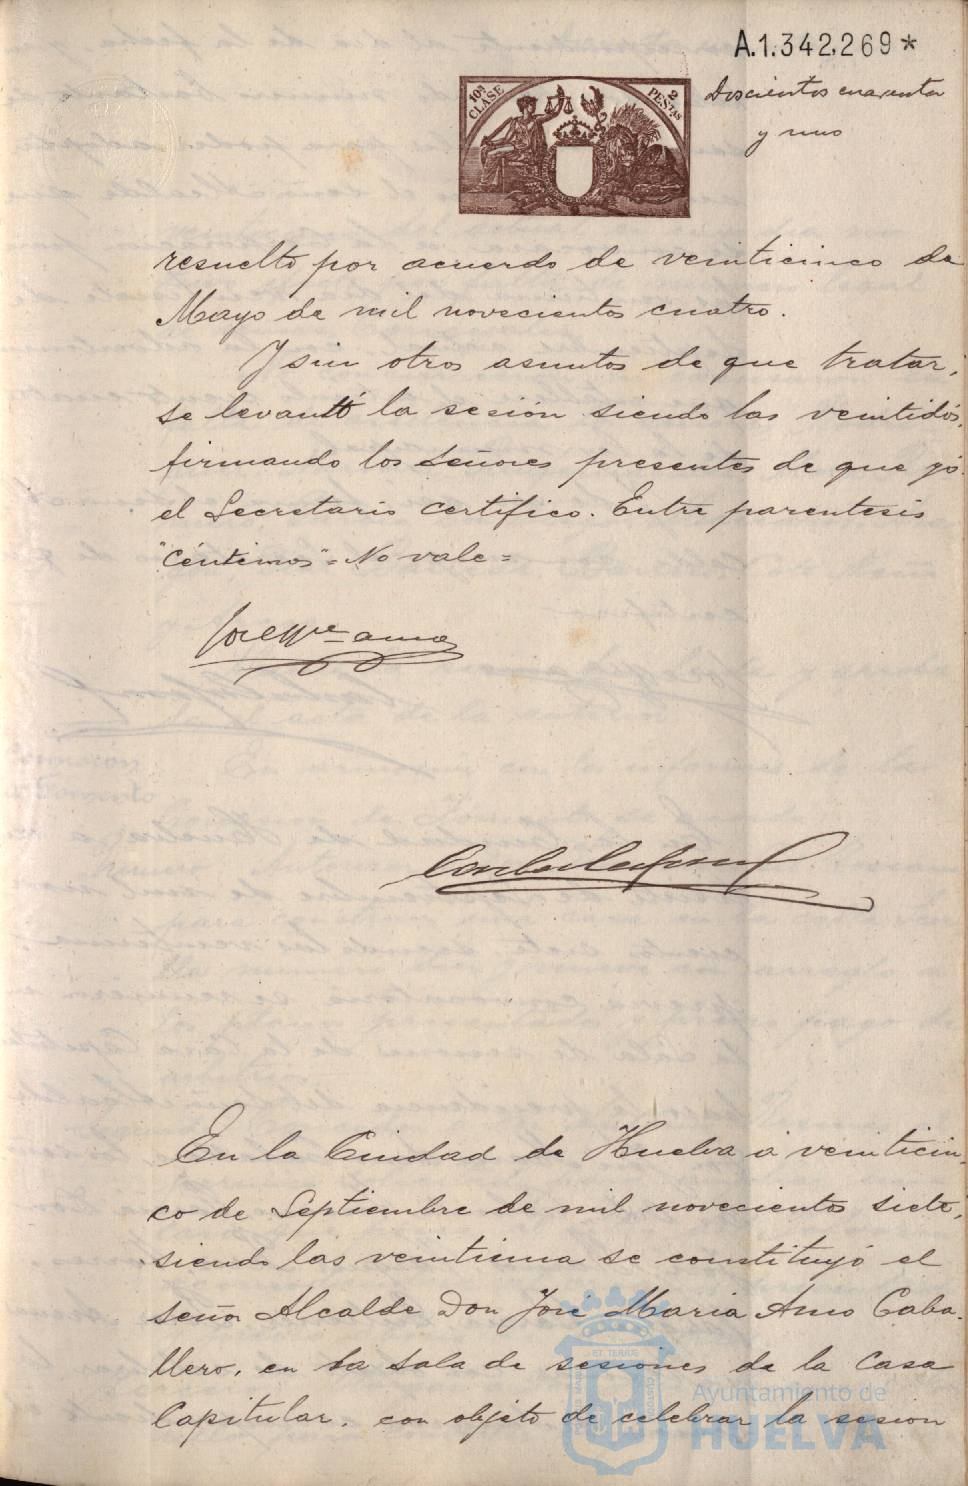 A.1.342.269*
10ª CLASE
2 PESTAS
Doscientos cuarenta
y uno
resuelto por acuerdo de veinticinco de
Mayo de mil novecientos cuatro.
Y sin otros asuntos de que tratar,
se levantó la sesión siendo las veintidós,
firmando los señores presentes de que yó
el Secretario certifico. Entre parentesis
"céntimos" = No vale =
En la Ciudad de Huelva á veinticin-
co de Septiembre de mil novecientos siete,
siendo las veintiuna se constituyó el
señor Alcalde Don José Maria Amo Caba-
llero, en la sala de sesiones de la Casa
Capitular, con objeto de celebrar la sesion
Ayuntamiento de
HUELVA